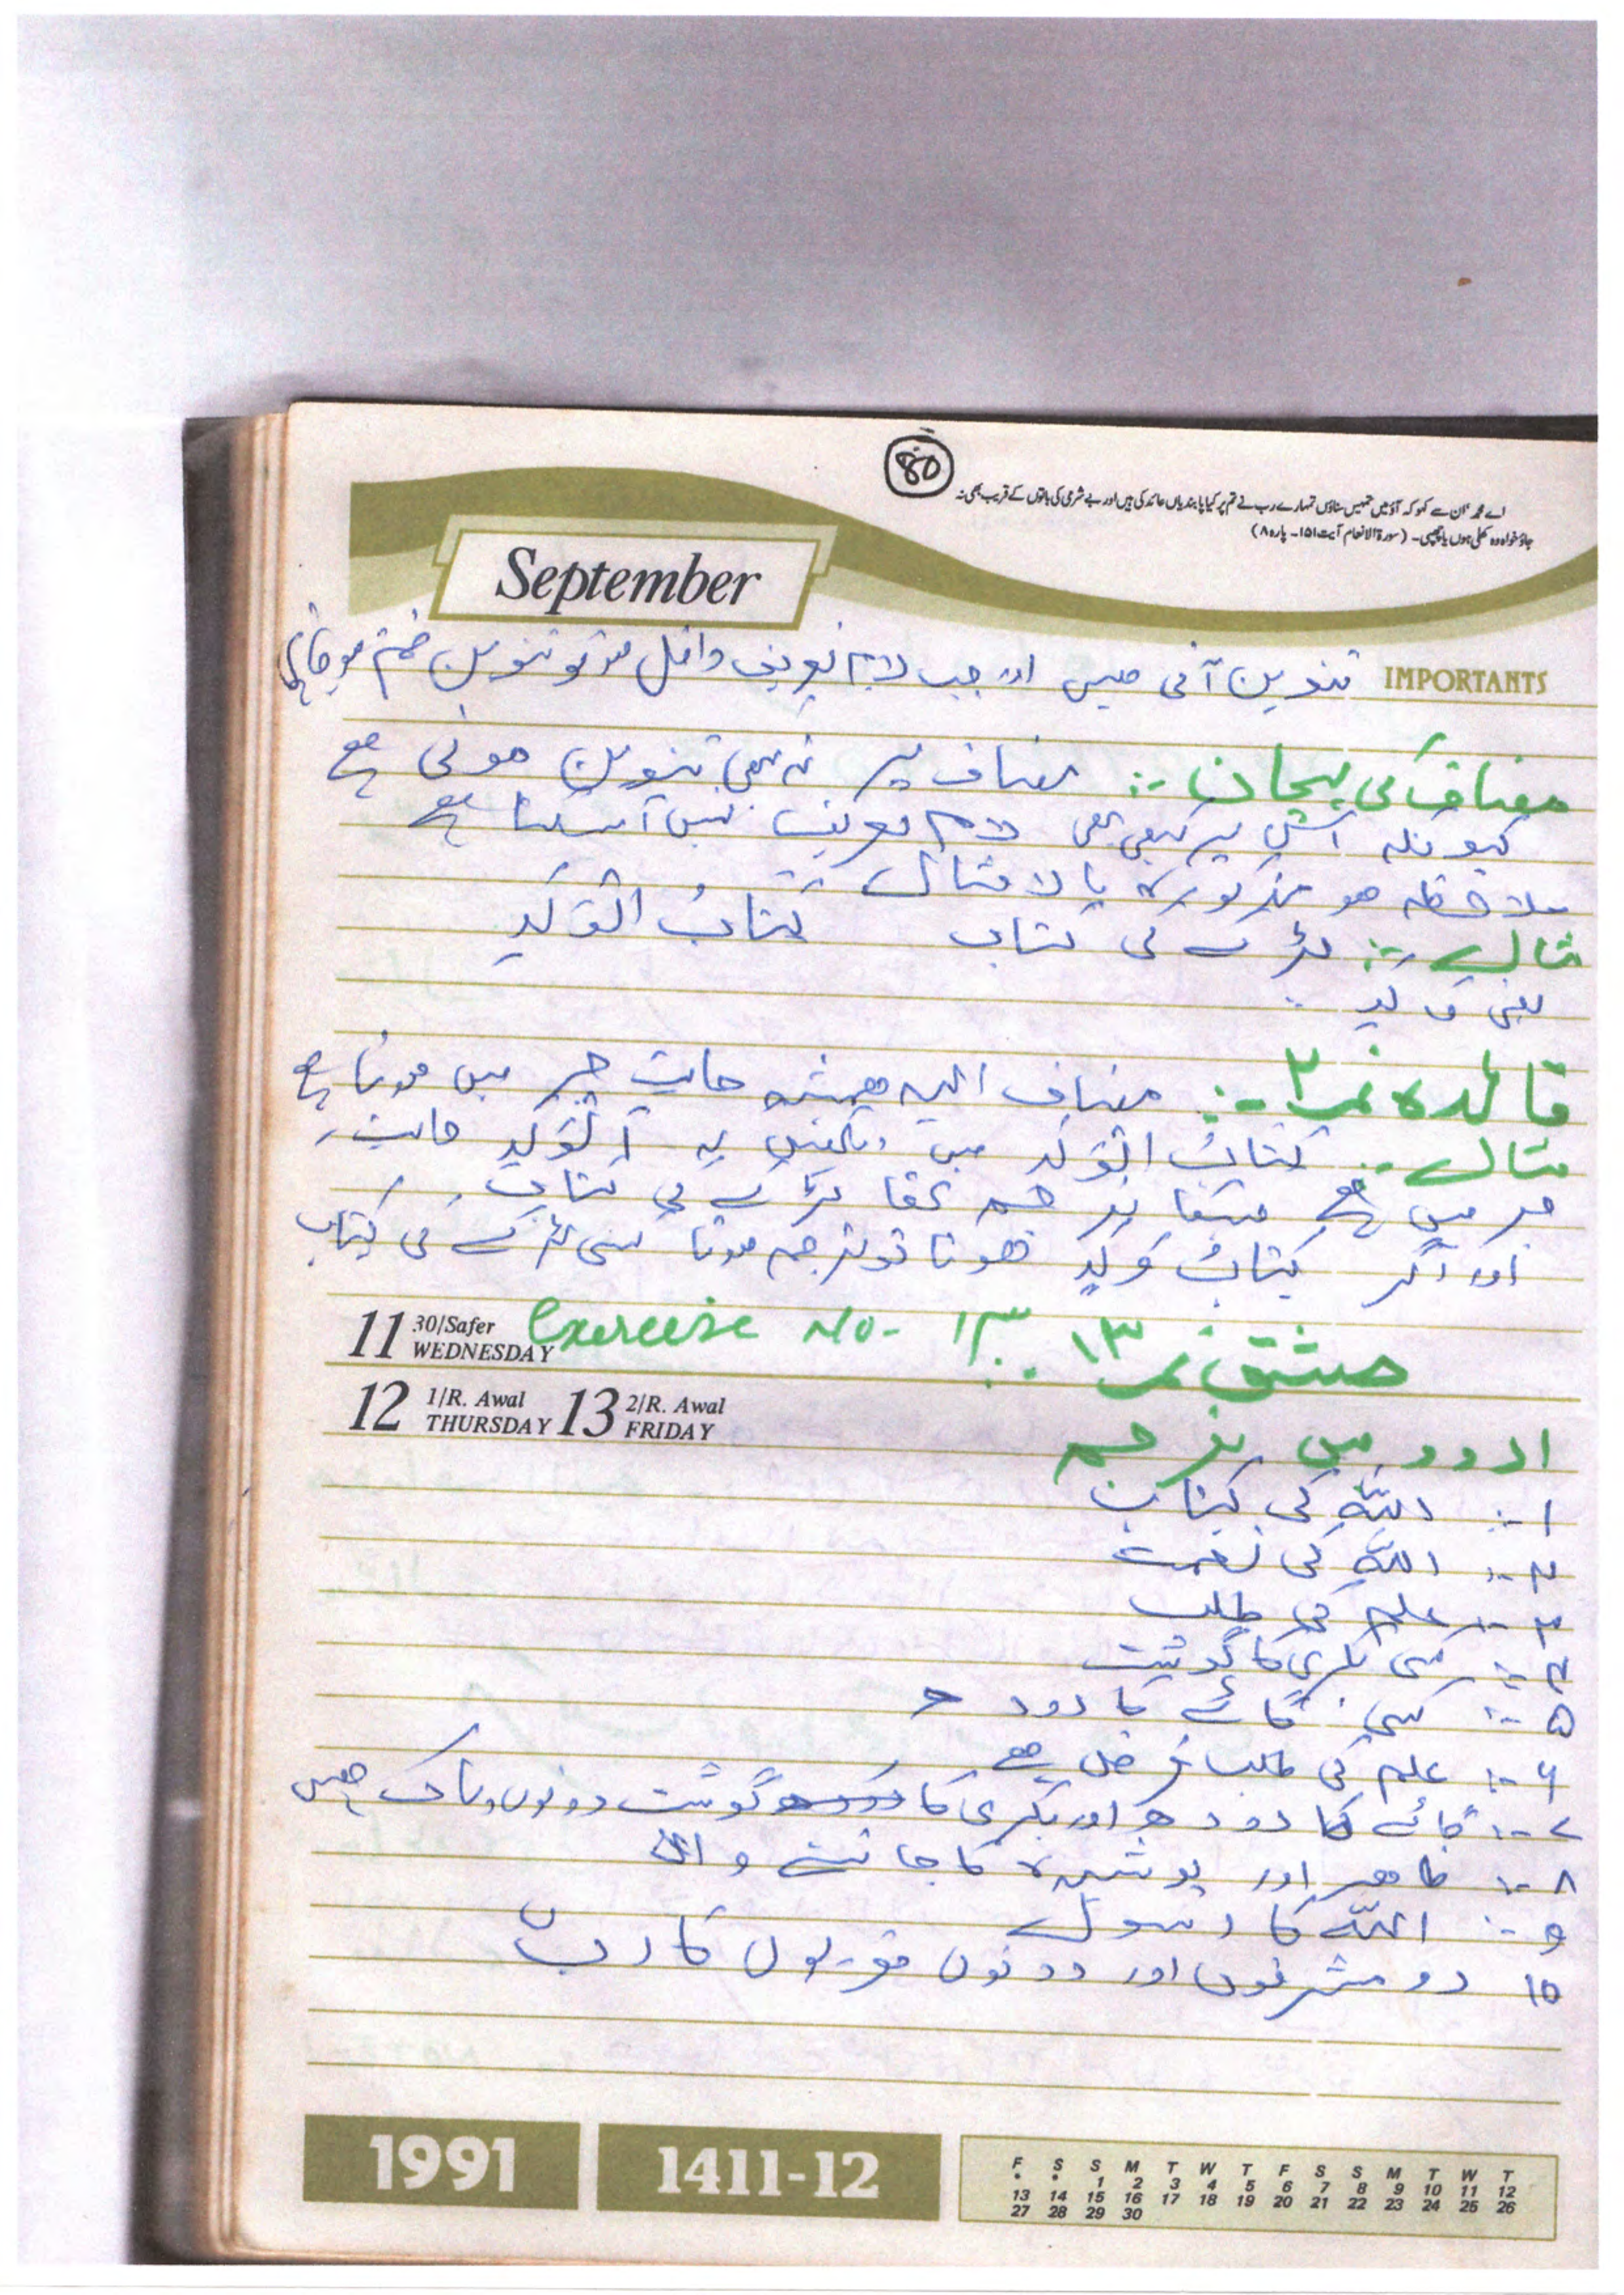 80
اے محمدؐ ان سے کہو کہ آؤ میں تمہیں سناؤں تمہارے رب نے تم پر کیا پابندیاں عائد کی ہیں اور بے شرمی کی باتوں کے قریب بھی نہ
جاؤ خواہ وہ کھلی ہوں یا چھپی۔ (سورۃ الانعام آیت ۱۵۱۔ پارہ ۸)
September
IMPORTANTS
تنوین آتی ہیں اور جب لام تعریف داخل ہو تو تنوین ختم ہو جاتی
مضاف کی پہچان :- مضاف پر نہ بھی تنوین ہوتی ہے
کیونکہ اس پر کبھی بھی لام تعریف نہیں آسکتا ہے
ملاحظہ ہو مذکورہ بالا مثال
مثال :- لڑکے کی کتاب کتابُ الْوَلَدِ
یعنی ولد
قائدہ نمبر ۲ :- مضاف الیہ ہمیشہ حالتِ جر میں ہوتا ہے
مثال :- کتابُ الْوَلَدِ میں دیکھیں یہ اَلْوَلَدِ حالت
جر میں ہے جسکا ترجمہ تھا لڑکے کی کتاب
اور اگر کِتَابُ وَلَدٍ ہوتا تو ترجمہ ہوتا کسی لڑکے کی کتاب
11 30/Safer WEDNESDAY
Exercise No. 13 مشق نمبر ۱۳
12 1/R. Awal THURSDAY 13 2/R. Awal FRIDAY
اردو میں ترجمہ
۱ :- اللہ کی کتاب
۲ :- اللہ کی نعمت
۳ :- علم کی طلب
۴ :- کسی بکری کا گوشت
۵ :- کسی گائے کا دودھ
۶ :- علم کی طلب فرض ہے
۷ :- گائے کا دودھ اور بکری کا گوشت دونوں پاک ہیں
۸ :- ظاہر اور پوشیدہ کا جاننے والا
۹ :- اللہ کا رسول
10 دو مشرقوں اور دونوں مغربوں کا رب
1991
1411-12
F S S M T W T F S S M T W T
• • 1 2 3 4 5 6 7 8 9 10 11 12
13 14 15 16 17 18 19 20 21 22 23 24 25 26
27 28 29 30